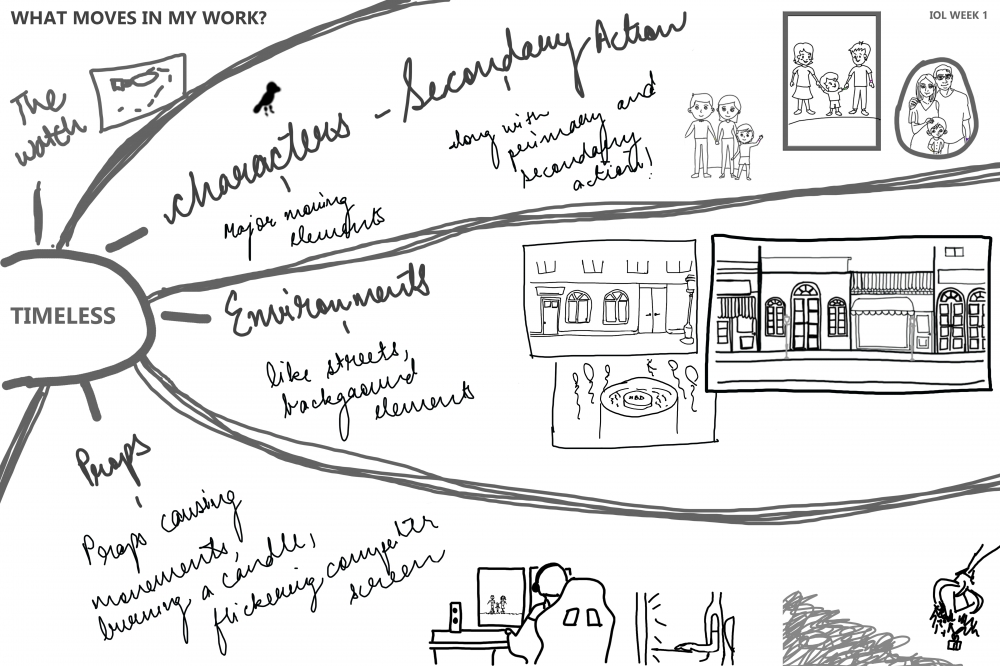 WHAT MOVES IN MY WORK?
IOL WEEK 1
The
watch
characters - Secondary Action
Major moving
elements
along with
primary and
secondary
action!
TIMELESS
Environments
like streets,
background
elements
HBD
Props
Props causing
movements,
burning a candle,
flickering computer
screen